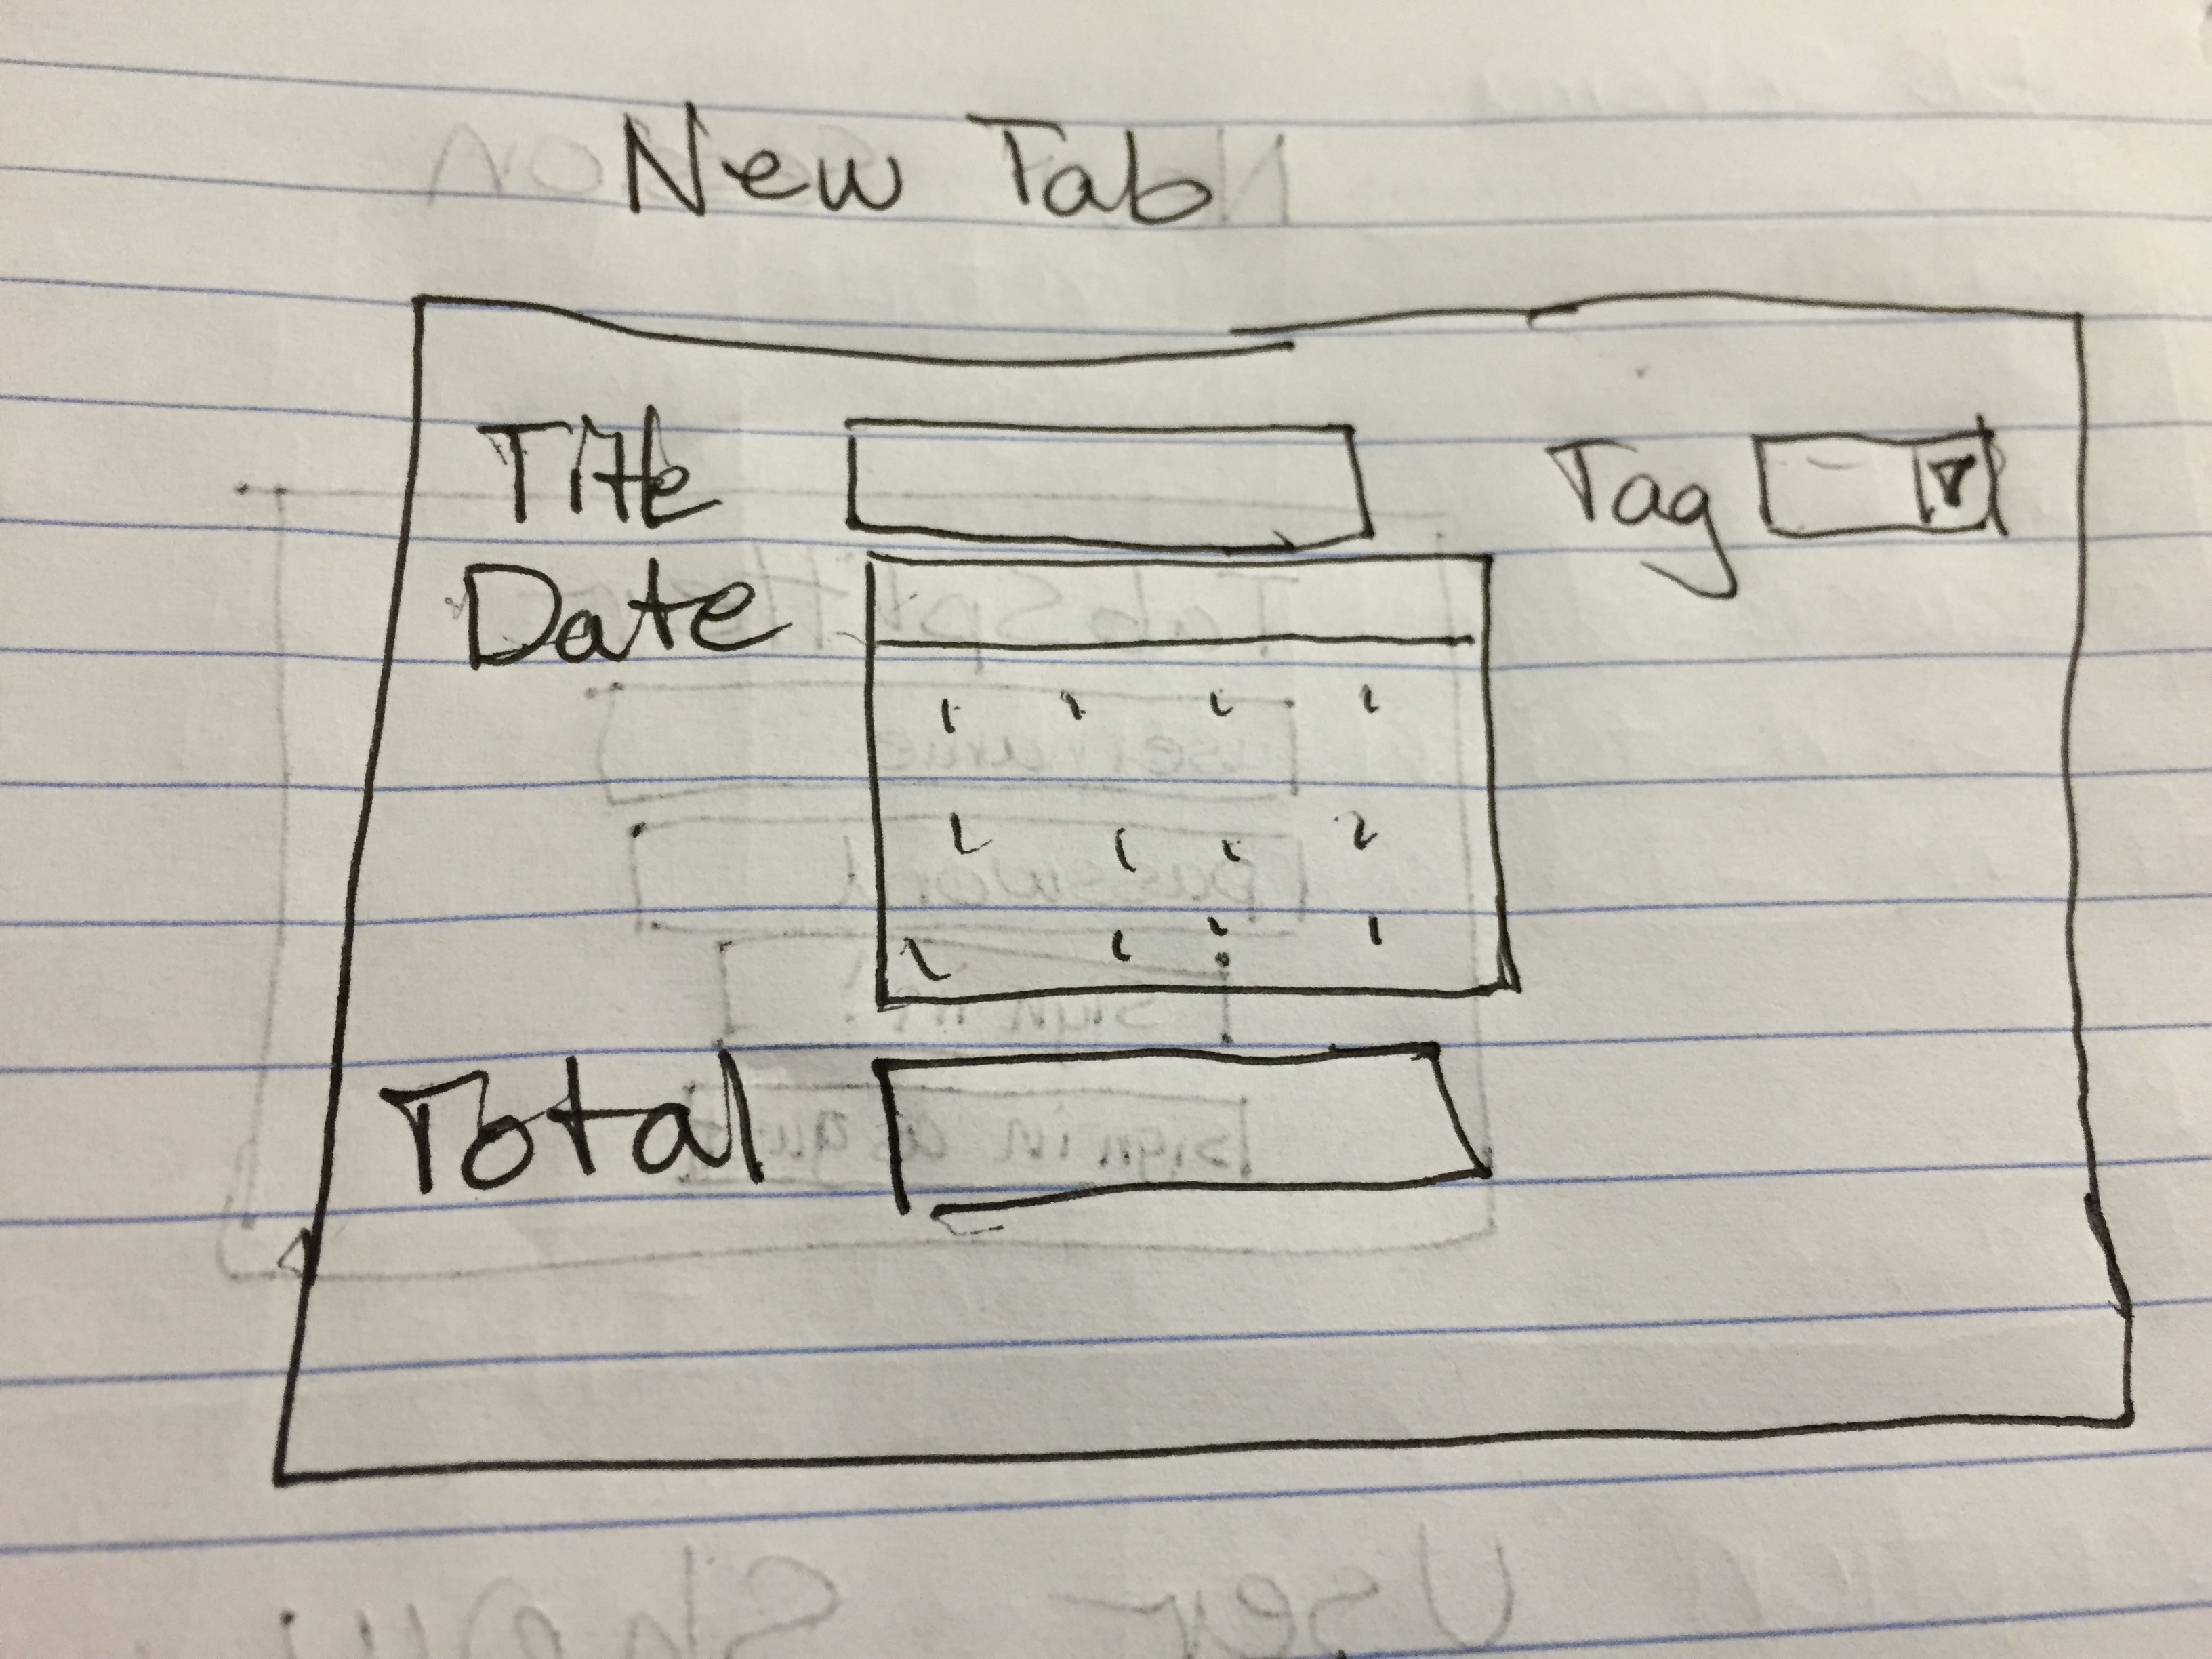 New Tab
Title Tag
Date
Total